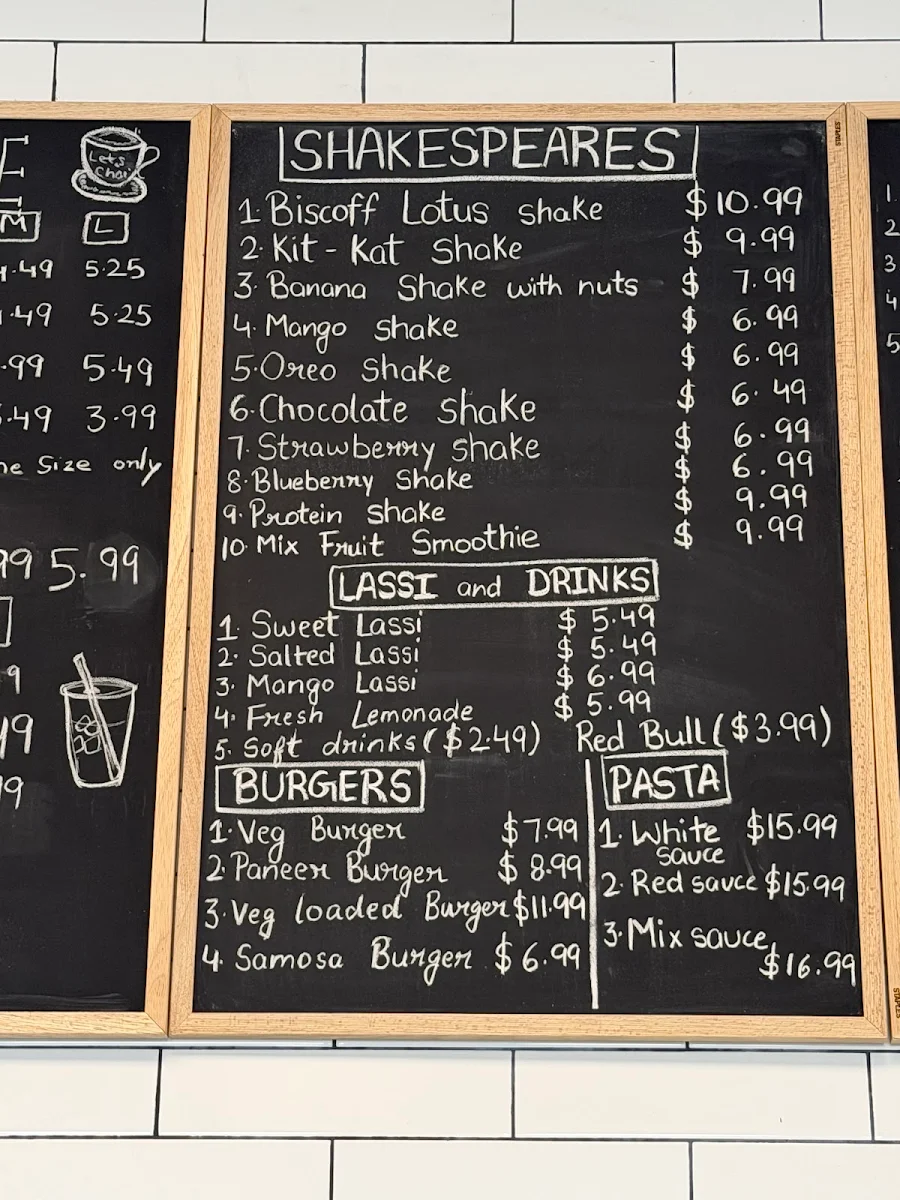 Let's
Chai
M L
.49 5.25
.49 5.25
.99 5.49
.49 3.99
Size only
99 5.99
9
19
19
SHAKESPEARES
1. Biscoff Lotus shake $10.99
2. Kit-Kat Shake $ 9.99
3. Banana Shake with nuts $ 7.99
4. Mango shake $ 6.99
5. Oreo shake $ 6.99
6. Chocolate shake $ 6.49
7. Strawberry shake $ 6.99
8. Blueberry Shake $ 6.99
9. Protein shake $ 9.99
10. Mix Fruit Smoothie $ 9.99
LASSI and DRINKS
1. Sweet Lassi $ 5.49
2. Salted Lassi $ 5.49
3. Mango Lassi $ 6.99
4. Fresh Lemonade $ 5.99
5. Soft drinks ($2.49) Red Bull ($3.99)
BURGERS
1. Veg Burger $7.99
2. Paneer Burger $ 8.99
3. Veg loaded Burger $11.99
4. Samosa Burger $ 6.99
PASTA
1. White $15.99
sauce
2. Red sauce $15.99
3. Mix sauce
$16.99
STAPLES
1.
2
3
4
5